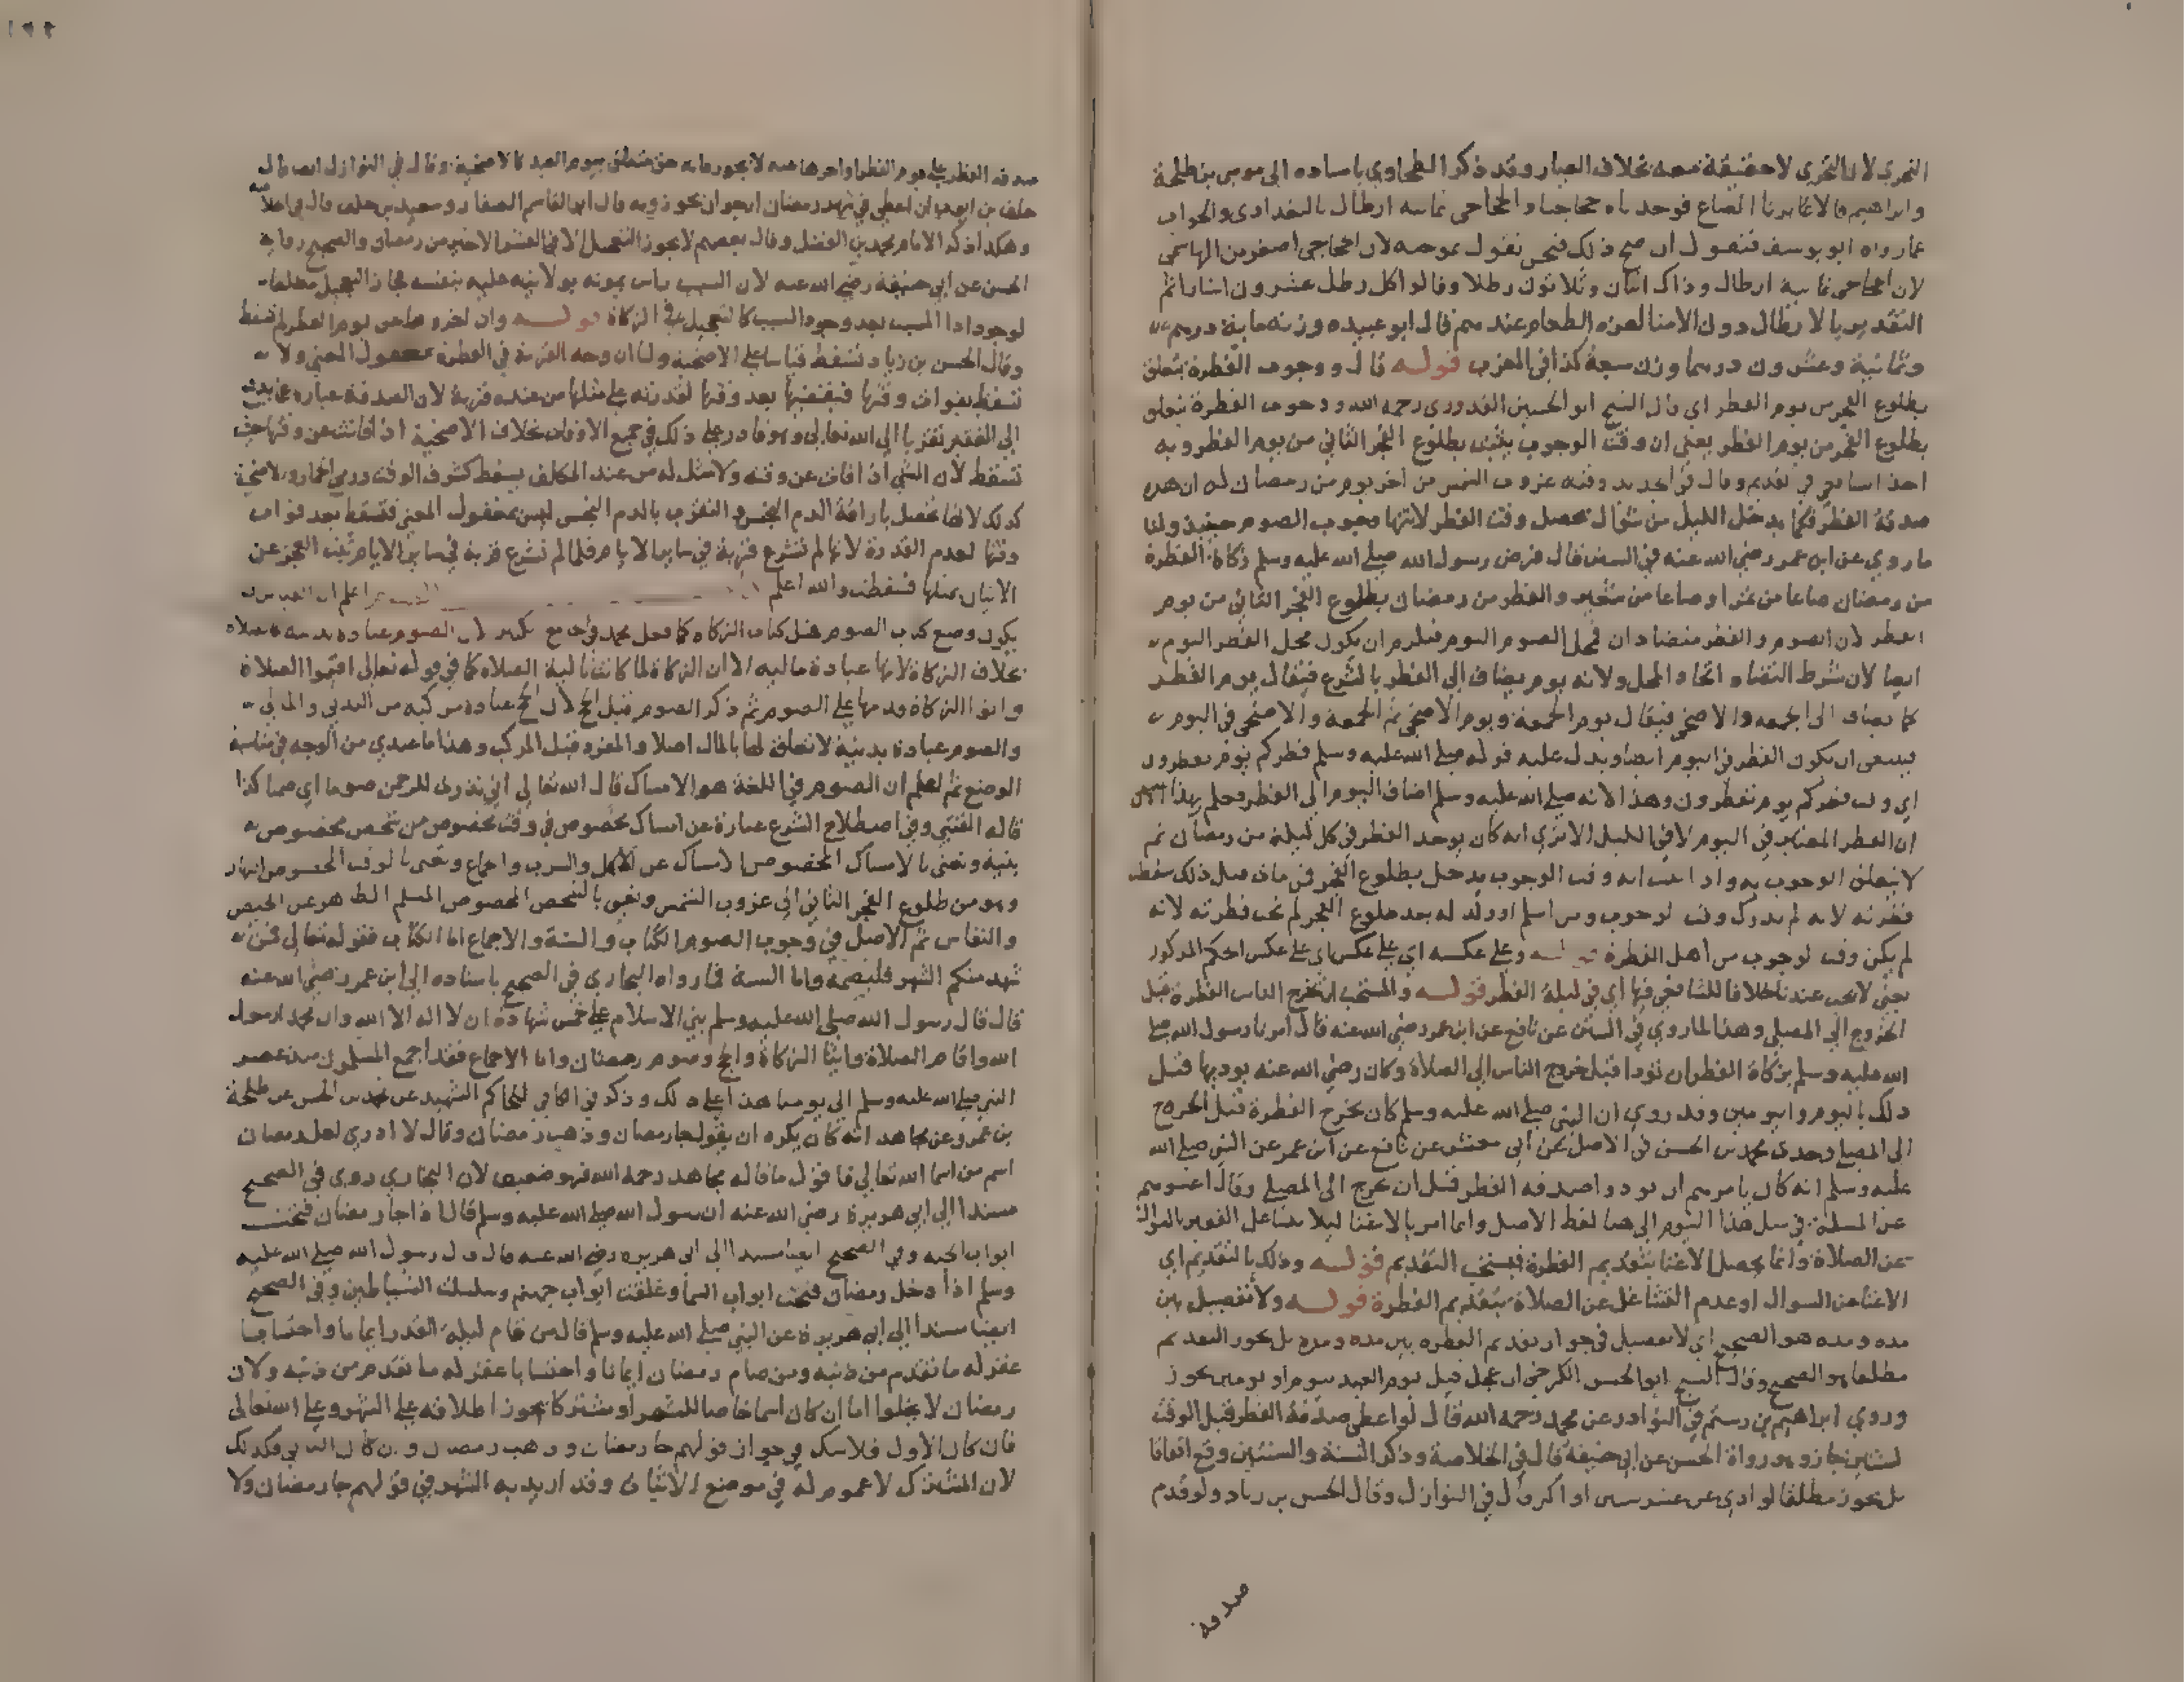 التحري لان التحري لا حقيقة معه بخلاف العيار وقد ذكر الطحاوي باسناده الى موسى بن طلحة
وابراهيم قالا عايرنا الصاع فوجدناه حجاجيا والحجاجي ثمانية ارطال بالبغدادي والجواب
عما رواه ابو يوسف فنقول ان صح ذلك فنحن نقول بموجبه لان الحجاجي اصغر من الهاشمي
لان الحجاجي ثمانية ارطال وذاك اثنان وثلاثون رطلا وقالوا كل رطل عشرون استارا ثم
التقدير بالارطال دون الامنا لعزة الطعام عندهم قال ابو عبيده وزنه ماية درهم
وثمانية وعشرون درهما وزن سبعة كذا في المغرب قوله قال ووجوب الفطرة يتعلق
بطلوع الفجر من يوم الفطر اي قال الشيخ ابو الحسين القدوري رحمه الله ووجوب الفطرة يتعلق
بطلوع الفجر من يوم الفطر يعني ان وقت الوجوب يثبت بطلوع الفجر الثاني من يوم الفطر وبه
اخذ الشافعي في القديم وقال في الجديد وقته غروب الشمس من اخر يوم من رمضان له ان هذه
صدقة الفطر فكما يدخل الليل من شوال يحصل وقت الفطر لانتها وجوب الصوم حينئذ ولنا
ما روي عن ابن عمر رضي الله عنه في السنن قال فرض رسول الله صلى الله عليه وسلم زكاة الفطرة
من رمضان صاعا من تمر او صاعا من شعير والفطر من رمضان بطلوع الفجر الثاني من يوم
الفطر لان الصوم والفطر متضادان فمحل الصوم اليوم فيلزم ان يكون محل الفطر اليوم
ايضا لان شرط التضاد اتحاد المحل ولانه يوم يضاف الى الفطر بالشرع فيقال يوم الفطر
كما يضاف الى الجمعه والاضحى فيقال يوم الجمعة ويوم الاضحى ثم الجمعة والاضحى في اليوم
فينبغي ان يكون الفطر في اليوم ايضا ويدل عليه قوله صلى الله عليه وسلم فطركم يوم تفطرون
اي وقت فطركم يوم تفطرون وهذا لانه صلى الله عليه وسلم اضاف اليوم الى الفطر فعلم بهذا
ان الفطر المعتبر في اليوم لا في الليل الا ترى انه كان يوجد الفطر في كل ليلة من رمضان ثم
لا يتعلق الوجوب به واذا ثبت ان وقت الوجوب يدخل بطلوع الفجر فمن مات قبل ذلك سقطت
فطرته لانه لم يدرك وقت الوجوب ومن اسلم او ولد له بعد طلوع الفجر لم تجب فطرته لانه
لم يكن وقت الوجوب من اهل الفطرة قوله وعلى عكسه اي على عكس اي على عكس الحكم المذكور
يعني لا تجب عندنا خلافا للشافعي فيها اي في ليلة الفطر قوله والمستحب ان يخرج الناس الفطرة قبل
الخروج الى المصلى وهذا لما روي في السنن عن نافع عن ابن عمر رضي الله عنه قال امرنا رسول الله صلى
الله عليه وسلم بزكاة الفطر ان تودا قبل خروج الناس الى الصلاة وكان رضي الله عنه يوديها قبل
ذلك باليوم واليومين وقد روي ان النبي صلى الله عليه وسلم كان يخرج الفطرة قبل الخروج
الى المصلى وحدث محمد بن الحسن في الاصل عن ابي معشر عن نافع عن ابن عمر عن النبي صلى الله
عليه وسلم انه كان يامرهم ان يودوا صدقه الفطر قبل ان يخرج الى المصلى وقال اغنوهم
عن المسلة في مثل هذا اليوم الى هنا لفظ الاصل وانما امر بالاغنا ليلا يتشاغل الفقير بالسوال
عن الصلاة وانما يحصل الاغنا بتقديم الفطرة فيستحب التقديم قوله وذلك بالتقديم اي
الاغنا عن السوال او عدم التشاغل عن الصلاة بتقديم الفطرة قوله ولا تفصيل بين
مده ومده هو الصحيح اي لا تفصيل في جواز تقديم الفطره بين مده ومده بل يجوز التقديم
مطلقا هو الصحيح وقال الشيخ ابو الحسن الكرخي ان عجل قبل يوم العيد بيوم او يومين يجوز
وروي ابراهيم بن رستم في النوادر عن محمد رحمه الله قال لو اعطى صدقة الفطر قبل الوقت
بسنتين جاز وهو رواة الحسن عن ابي حنيفة قال في الخلاصة وذكر السنة والسنتين وقع اتفاقا
بل يجوز مطلقا لو ادى عن عشر سنين او اكثر وقال في النوازل وقال الحسن بن زياد ولو قدم
صدقة
١٩٢
صدقه الفطر على يوم الفطر او اخرها عنه لا يجوز لانه حق متعلق بيوم العيد كالاضحية وقال في النوازل ايضا قال
خلف بن ايوب ان اعطى في شهر رمضان ارجو ان يجوز وبه قال ابو القاسم الصفار وسعيد بن خلف قال في
وهكذا ذكر الامام محمد بن الفضل وقال بعضهم لا يجوز التعجيل الا في العشر الاخير من رمضان والصحيح رواية
الحسن عن ابي حنيفة رضي الله عنه لان السبب راس يمونه بولايته عليه بنفسه فجاز التعجيل مطلقا
لوجود اداء المسبب بعد وجود السبب كالتعجيل في الزكاة قوله وان اخروها عن يوم الفطر لم تسقط
وقال الحسن بن زياد تسقط قياسا على الاضحيه ولنا ان وجه القربة في الفطرة معقول المعنى ولا
تسقط بفوات وقتها فيقضيها بعد وقتها لقدرته على مثلها من عنده قربة لان الصدقة عباره عما يدفع
الى الفقير تقربا الى الله تعالى وهو قادر على ذلك في جميع الاوقات بخلاف الاضحية اذا فاتت عن وقتها حيث
تسقط لان الشي اذا فات عن وقته ولا مثل له من عند المكلف يسقط كشرف الوقت ورمي الجمار والاضحية
كذلك لانها تحصل باراقة الدم النجس والتقرب بالدم النجس ليس بمعقول المعنى فتسقط بعد فوات
وقتها لعدم القدرة لانها لم تشرع قربة في ساير الايام فلما لم تشرع قربة في ساير الايام ثبت العجز عن
الاتيان بمثلها فسقطت والله اعلم اعلم ان القياس ان
يكون وضع كتاب الصوم قبل كتاب الزكاه كما فعل محمد في الجامع الكبير لان الصوم عبادة بدنيه كالصلاه
بخلاف الزكاة لانها عبادة ماليه الا ان الزكاة لما كانت تالية الصلاه كما في قوله تعالى اقيموا الصلاة
واتوا الزكاة قدمها على الصوم ثم ذكر الصوم قبل الحج لان الحج عبادة مركبه من البدني والمالي
والصوم عبادة بدنية لا تعلق لها بالمال اصلا والمفرد قبل المركب وهذا ما عندي من الوجه في مناسبة
الوضع ثم اعلم ان الصوم في اللغة هو الامساك قال الله تعالى اني نذرت للرحمن صوما اي صمتا كذا
قاله القتبي وفي اصطلاح الشرع عبارة عن امساك مخصوص في وقت مخصوص من شخص مخصوص
بنية ونعني بالامساك المخصوص الامساك عن الاكل والشرب والجماع ونعني بالوقت المخصوص النهار
وهو من طلوع الفجر الثاني الى غروب الشمس ونعني بالشخص المخصوص المسلم الطاهر عن الحيض
والنفاس ثم الاصل في وجوب الصوم الكتاب والسنة والاجماع اما الكتاب فقوله تعالى فمن
شهد منكم الشهر فليصمه واما السنة فما رواه البخاري في الصحيح باسناده الى ابن عمر رضي الله عنه
قال قال رسول الله صلى الله عليه وسلم بني الاسلام على خمس شهادة ان لا اله الا الله وان محمدا رسول
الله واقام الصلاة وايتا الزكاة والحج وصوم رمضان واما الاجماع فقد اجمع المسلمون من عصر
النبي صلى الله عليه وسلم الى يومنا هذا على ذلك وذكر في الكافي للحاكم الشهيد عن محمد بن الحسن عن طلحة
بن عمرو عن مجاهد انه كان يكره ان يقول جا رمضان وذهب رمضان وقال لا ادري لعل رمضان
اسم من اسما الله تعالى فاقول ما قاله مجاهد رحمه الله فهو ضعيف لان البخاري روى في الصحيح
مسندا الى ابي هريرة رضي الله عنه ان رسول الله صلى الله عليه وسلم قال اذا جا رمضان فتحت
ابواب الجنه وفي الصحيح ايضا مسندا الى ابي هريره رضي الله عنه قال قال رسول الله صلى الله عليه
وسلم اذا دخل رمضان فتحت ابواب السما وغلقت ابواب جهنم وسلسلت الشياطين وفي الصحيح
ايضا مسندا الى ابي هريرة عن النبي صلى الله عليه وسلم قال من قام ليلة القدر ايمانا واحتسابا
غفر له ما تقدم من ذنبه ومن صام رمضان ايمانا واحتسابا غفر له ما تقدم من ذنبه ولان
رمضان لا يخلوا اما ان كان اسما خاصا للشهر او مشتركا يجوز اطلاقه على الشهر وعلى الله تعالى
فان كان الاول فلا شك في جواز قولهم جا رمضان وذهب رمضان وان كان الثاني فكذلك
لان المشترك لا عموم له في موضع الاثبات وقد اريد به الشهر في قولهم جا رمضان ولا